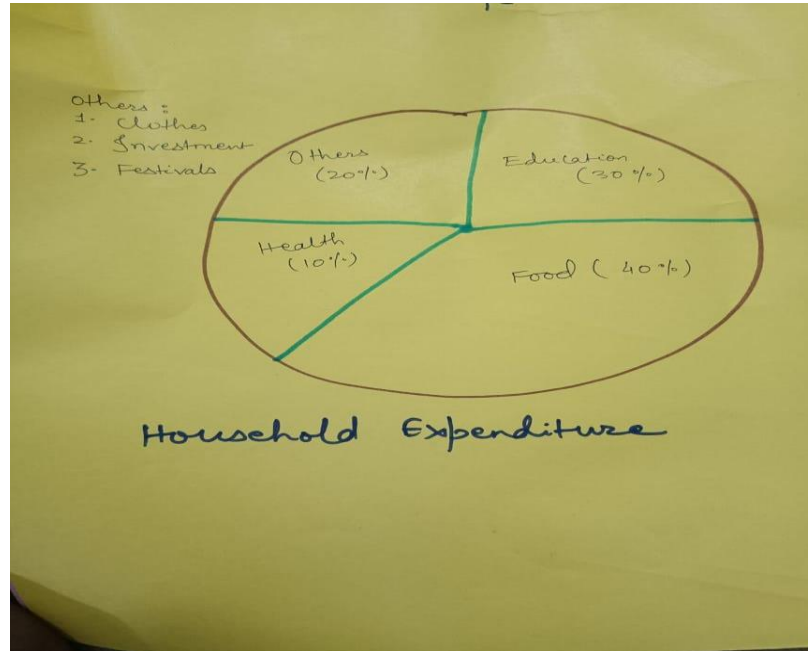 Others :
1. Clothes
2. Investment
3. Festivals
Others
(20%)
Education
(30%)
Health
(10%)
Food (40%)
Household Expenditure